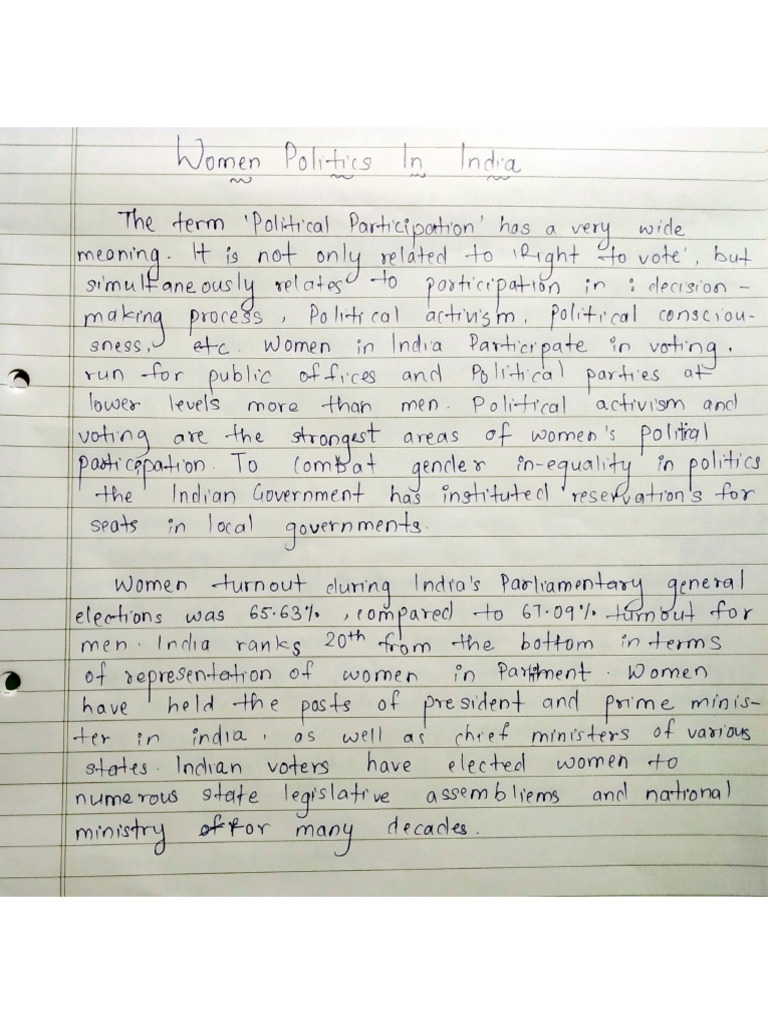 Women Politics In India
The term 'Political Participation' has a very wide
meaning. It is not only related to 'Right to vote', but
simultaneously relates to participation in : decision-
making process, Political activism, Political consciou-
sness, etc. Women in India Participate in voting,
run for public offices and Political parties at
lower levels more than men. Political activism and
voting are the strongest areas of women's political
participation. To combat gender in-equality in politics
the Indian Government has instituted reservation's for
seats in local governments.
Women turnout during India's Parliamentary general
elections was 65.63%, compared to 67.09% turnout for
men. India ranks 20th from the bottom in terms
of representation of women in Parliment. Women
have held the posts of president and prime minis-
ter in india, as well as chief ministers of various
states. Indian voters have elected women to
numerous state legislative assembliems and national
ministry for many decades.